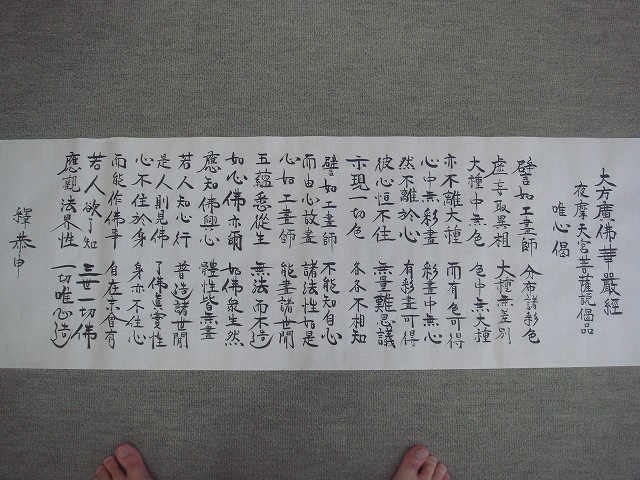 大方廣佛華嚴經
夜摩天宮菩薩說偈品
唯心偈
譬如工畫師 分布諸彩色
虛妄取異相 大種無差別
大種中無色 色中無大種
亦不離大種 而有色可得
心中無彩畫 彩畫中無心
然不離於心 有彩畫可得
彼心恒不住 無量難思議
示現一切色 各各不相知
譬如工畫師 不能知自心
而由心故畫 諸法性如是
心如工畫師 能畫諸世間
五蘊悉從生 無法而不造
如心佛亦爾 如佛眾生然
應知佛與心 體性皆無盡
若人知心行 普造諸世間
是人則見佛 了佛真實性
心不住於身 身亦不住心
而能作佛事 自在未曾有
若人欲了知 三世一切佛
應觀法界性 一切唯心造
恭申